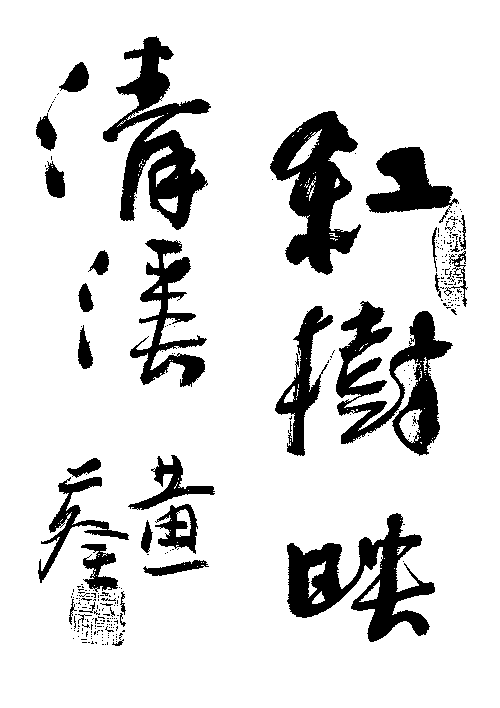 紅樹映
清溪
黃